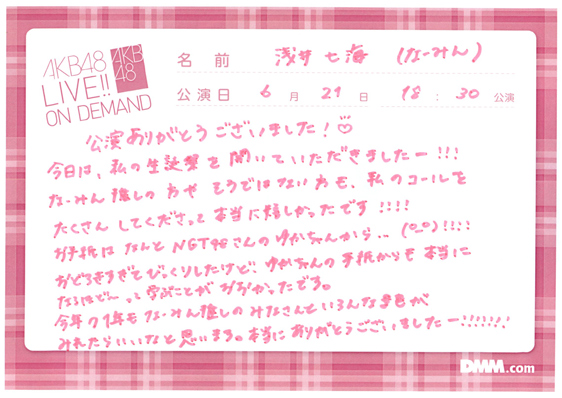 AKB48
LIVE!!
ON DEMAND
AKB
48
名前 浅井七海 (なーみん)
公演日 6月21日 18:30公演
公演ありがとうございました!♡
今日は、私の生誕祭を開いていただきましたー!!!
なーみん推しの方や そうではない方も、私のコールを
たくさん してくださって本当に嬉しかったです!!!!
お手紙は なんとNGT48さんのゆかちゃんから…
おどろきすぎてびっくりしたけど、ゆかちゃんの手紙からも 本当に
なるほど〜 って 学ぶことが おおかったです。
今年の1年も なーみん推しの みなさんといろんな景色が
みれたらいいなと思います。本当にありがとうございましたー!!!!!!!
DMM.com